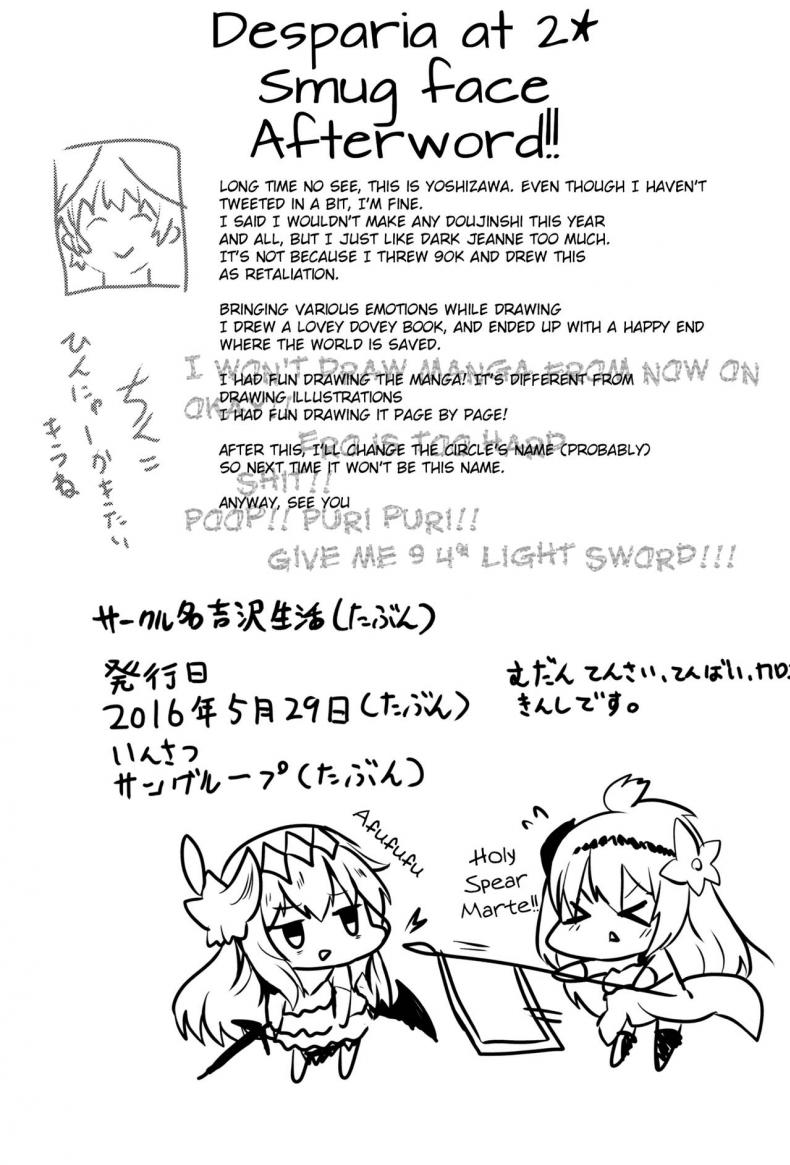 Desparia at 2★
Smug face
Afterword!!
LONG TIME NO SEE, THIS IS YOSHIZAWA. EVEN THOUGH I HAVEN'T
TWEETED IN A BIT, I'M FINE.
I SAID I WOULDN'T MAKE ANY DOUJINSHI THIS YEAR
AND ALL, BUT I JUST LIKE DARK JEANNE TOO MUCH.
IT'S NOT BECAUSE I THREW 90K AND DREW THIS
AS RETALIATION.
BRINGING VARIOUS EMOTIONS WHILE DRAWING
I DREW A LOVEY DOVEY BOOK, AND ENDED UP WITH A HAPPY END
WHERE THE WORLD IS SAVED.
I HAD FUN DRAWING THE MANGA! IT'S DIFFERENT FROM
DRAWING ILLUSTRATIONS
I HAD FUN DRAWING IT PAGE BY PAGE!
AFTER THIS, I'LL CHANGE THE CIRCLE'S NAME (PROBABLY)
SO NEXT TIME IT WON'T BE THIS NAME.
ANYWAY, SEE YOU
I WON'T DRAW MANGA FROM NOW ON
OKAY!!
ERO IS TOO HARD
SHIT!!
POOP!! PURI PURI!!
GIVE ME 9 4* LIGHT SWORD!!!
ちんこ
ひんにゅーかきたい
きうね
サークル名吉沢生活(たぶん)
発行日
2016年5月29日(たぶん)
いんさつ
サングループ(たぶん)
むだん てんさい、てんばい、カロ
きんしです。
Afufufu
Holy
Spear
Marte!!